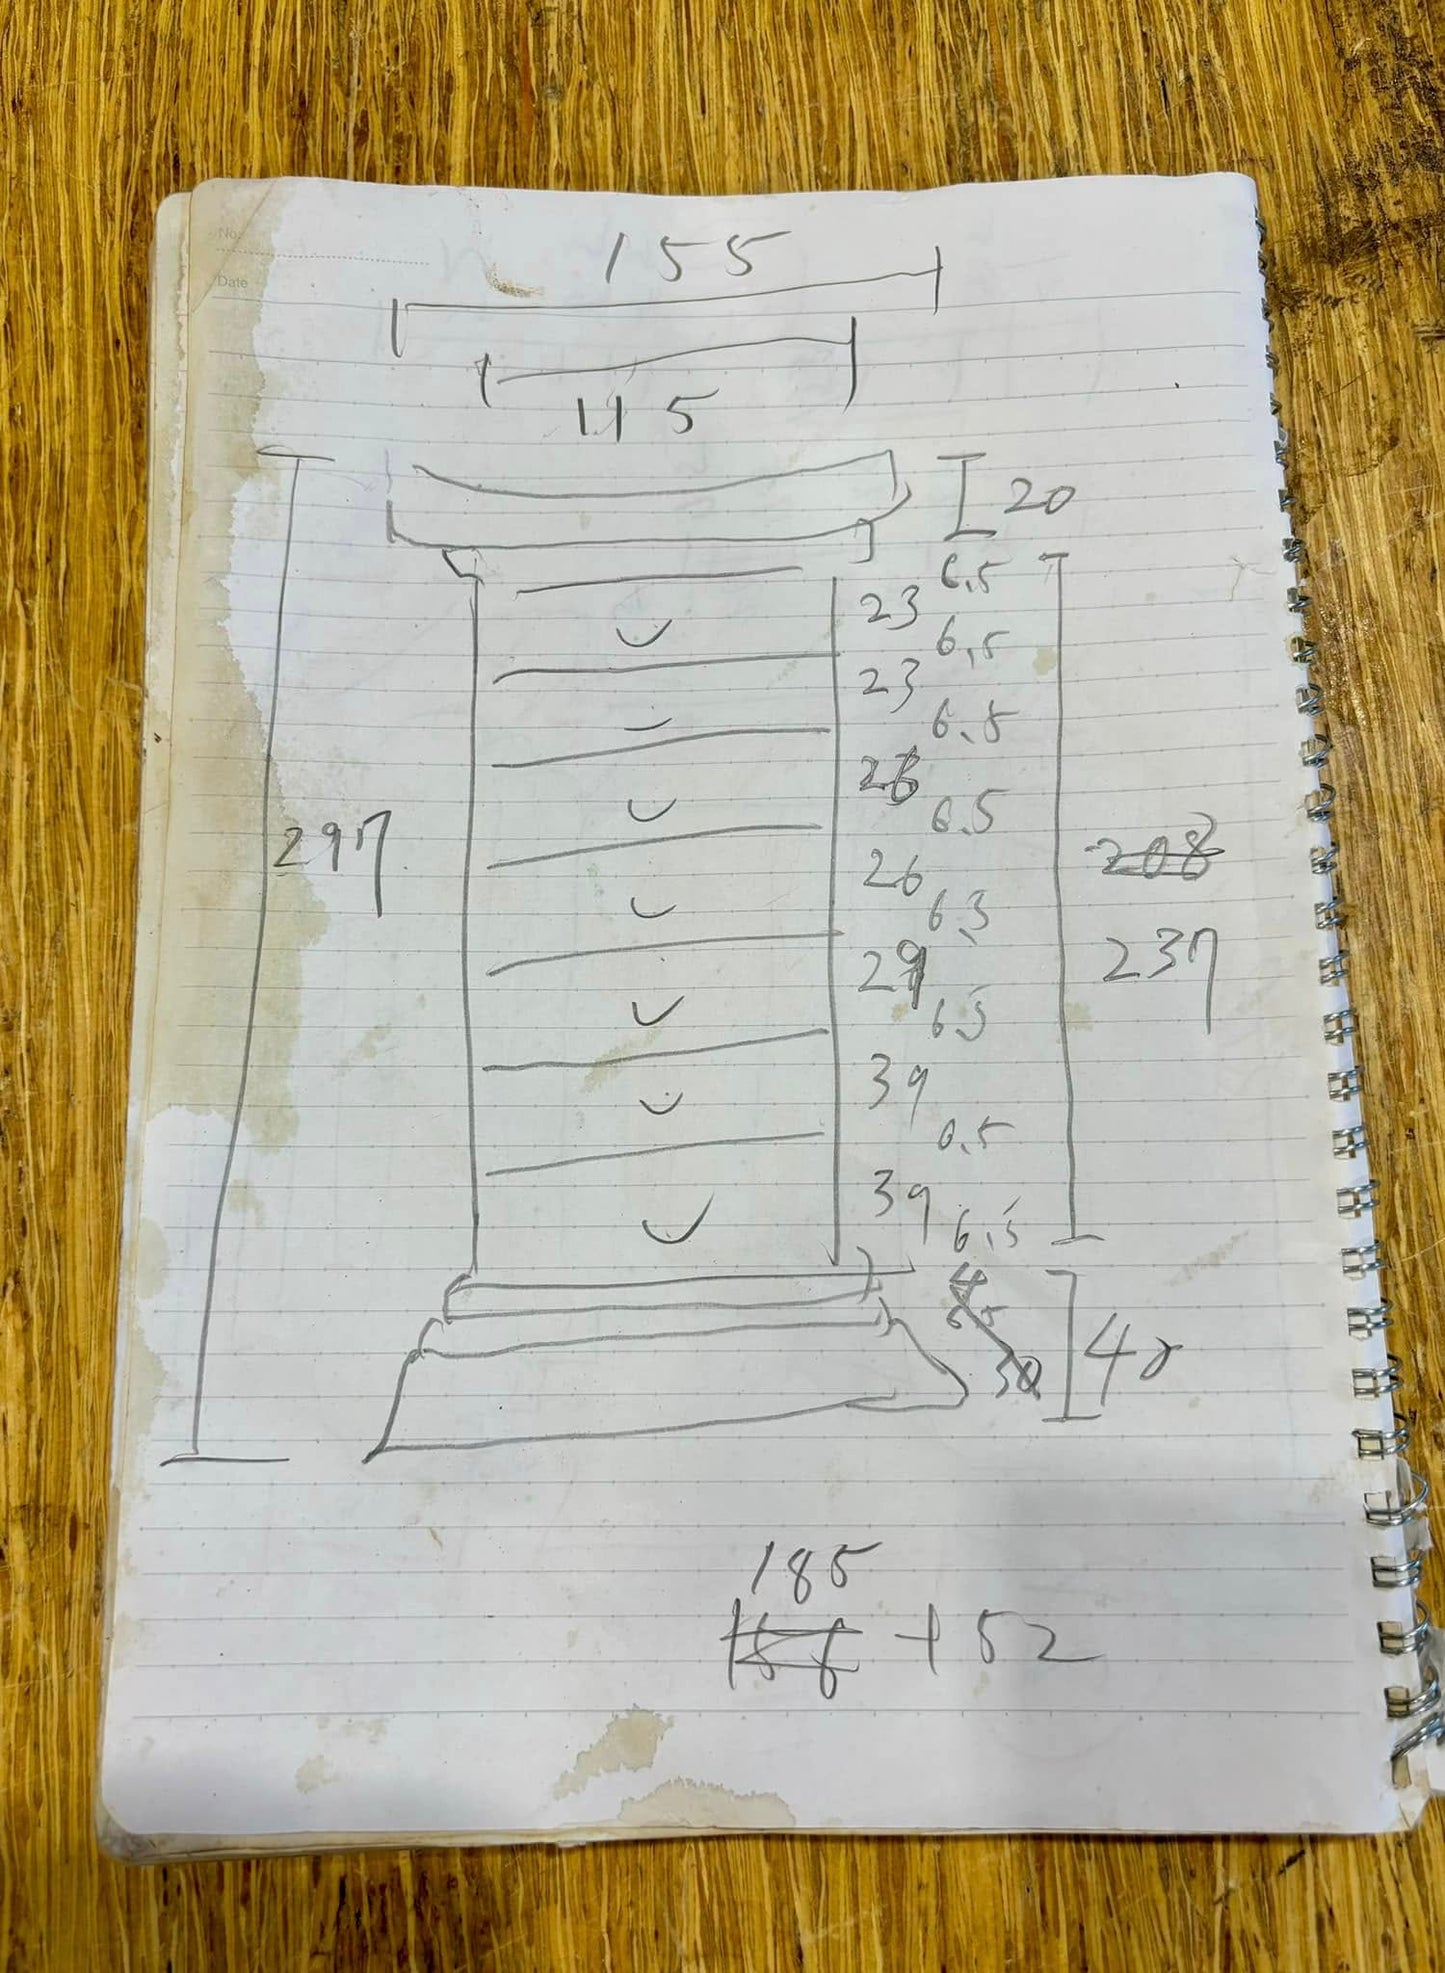 No.
Date
155
115
20
6.5
23
6.5
23
6.5
26
6.5
297
208
26
6.5
237
29
6.5
39
6.5
39
6.5
4
6.5
30
40
185
+52